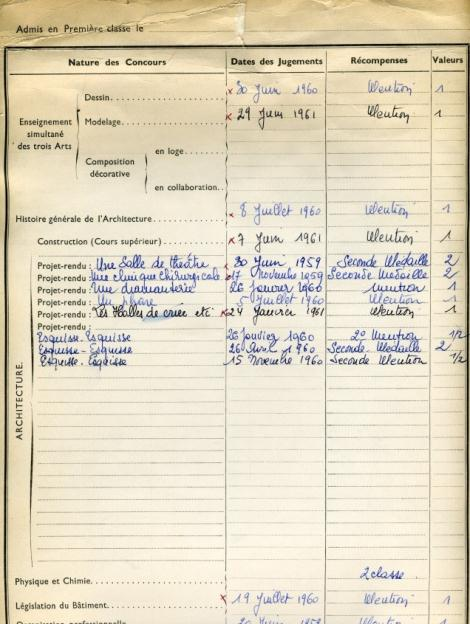 Admis en Première classe le
Nature des Concours Dates des Jugements Récompenses Valeurs
Enseignement simultané des trois Arts
Dessin 30 Juin 1960 Mention 1
Modelage 29 Juin 1961 Mention 1
Composition décorative
en loge
en collaboration
Histoire générale de l'Architecture 8 Juillet 1960 Mention 1
Construction (Cours supérieur) 7 Juin 1961 Mention 1
ARCHITECTURE.
Projet-rendu : Une Salle de théâtre 30 Juin 1959 Seconde Médaille 2
Projet-rendu : Une clinique chirurgicale 17 Novembre 1959 Seconde Médaille 2
Projet-rendu : Une diamanterie 26 Janvier 1960 Mention 1
Projet-rendu : Un phare 5 Juillet 1960 Mention 1
Projet-rendu : Les Halles de criée etc 24 Janvier 1961 Mention 1
Projet-rendu :
Esquisse-Esquisse 26 Janvier 1960 2e Mention 1/2
Esquisse-Esquisse 26 Avril 1960 Seconde Médaille 2
Esquisse-Esquisse 15 Novembre 1960 Seconde Mention 1/2
Physique et Chimie 2 classe
Législation du Bâtiment 19 Juillet 1960 Mention 1